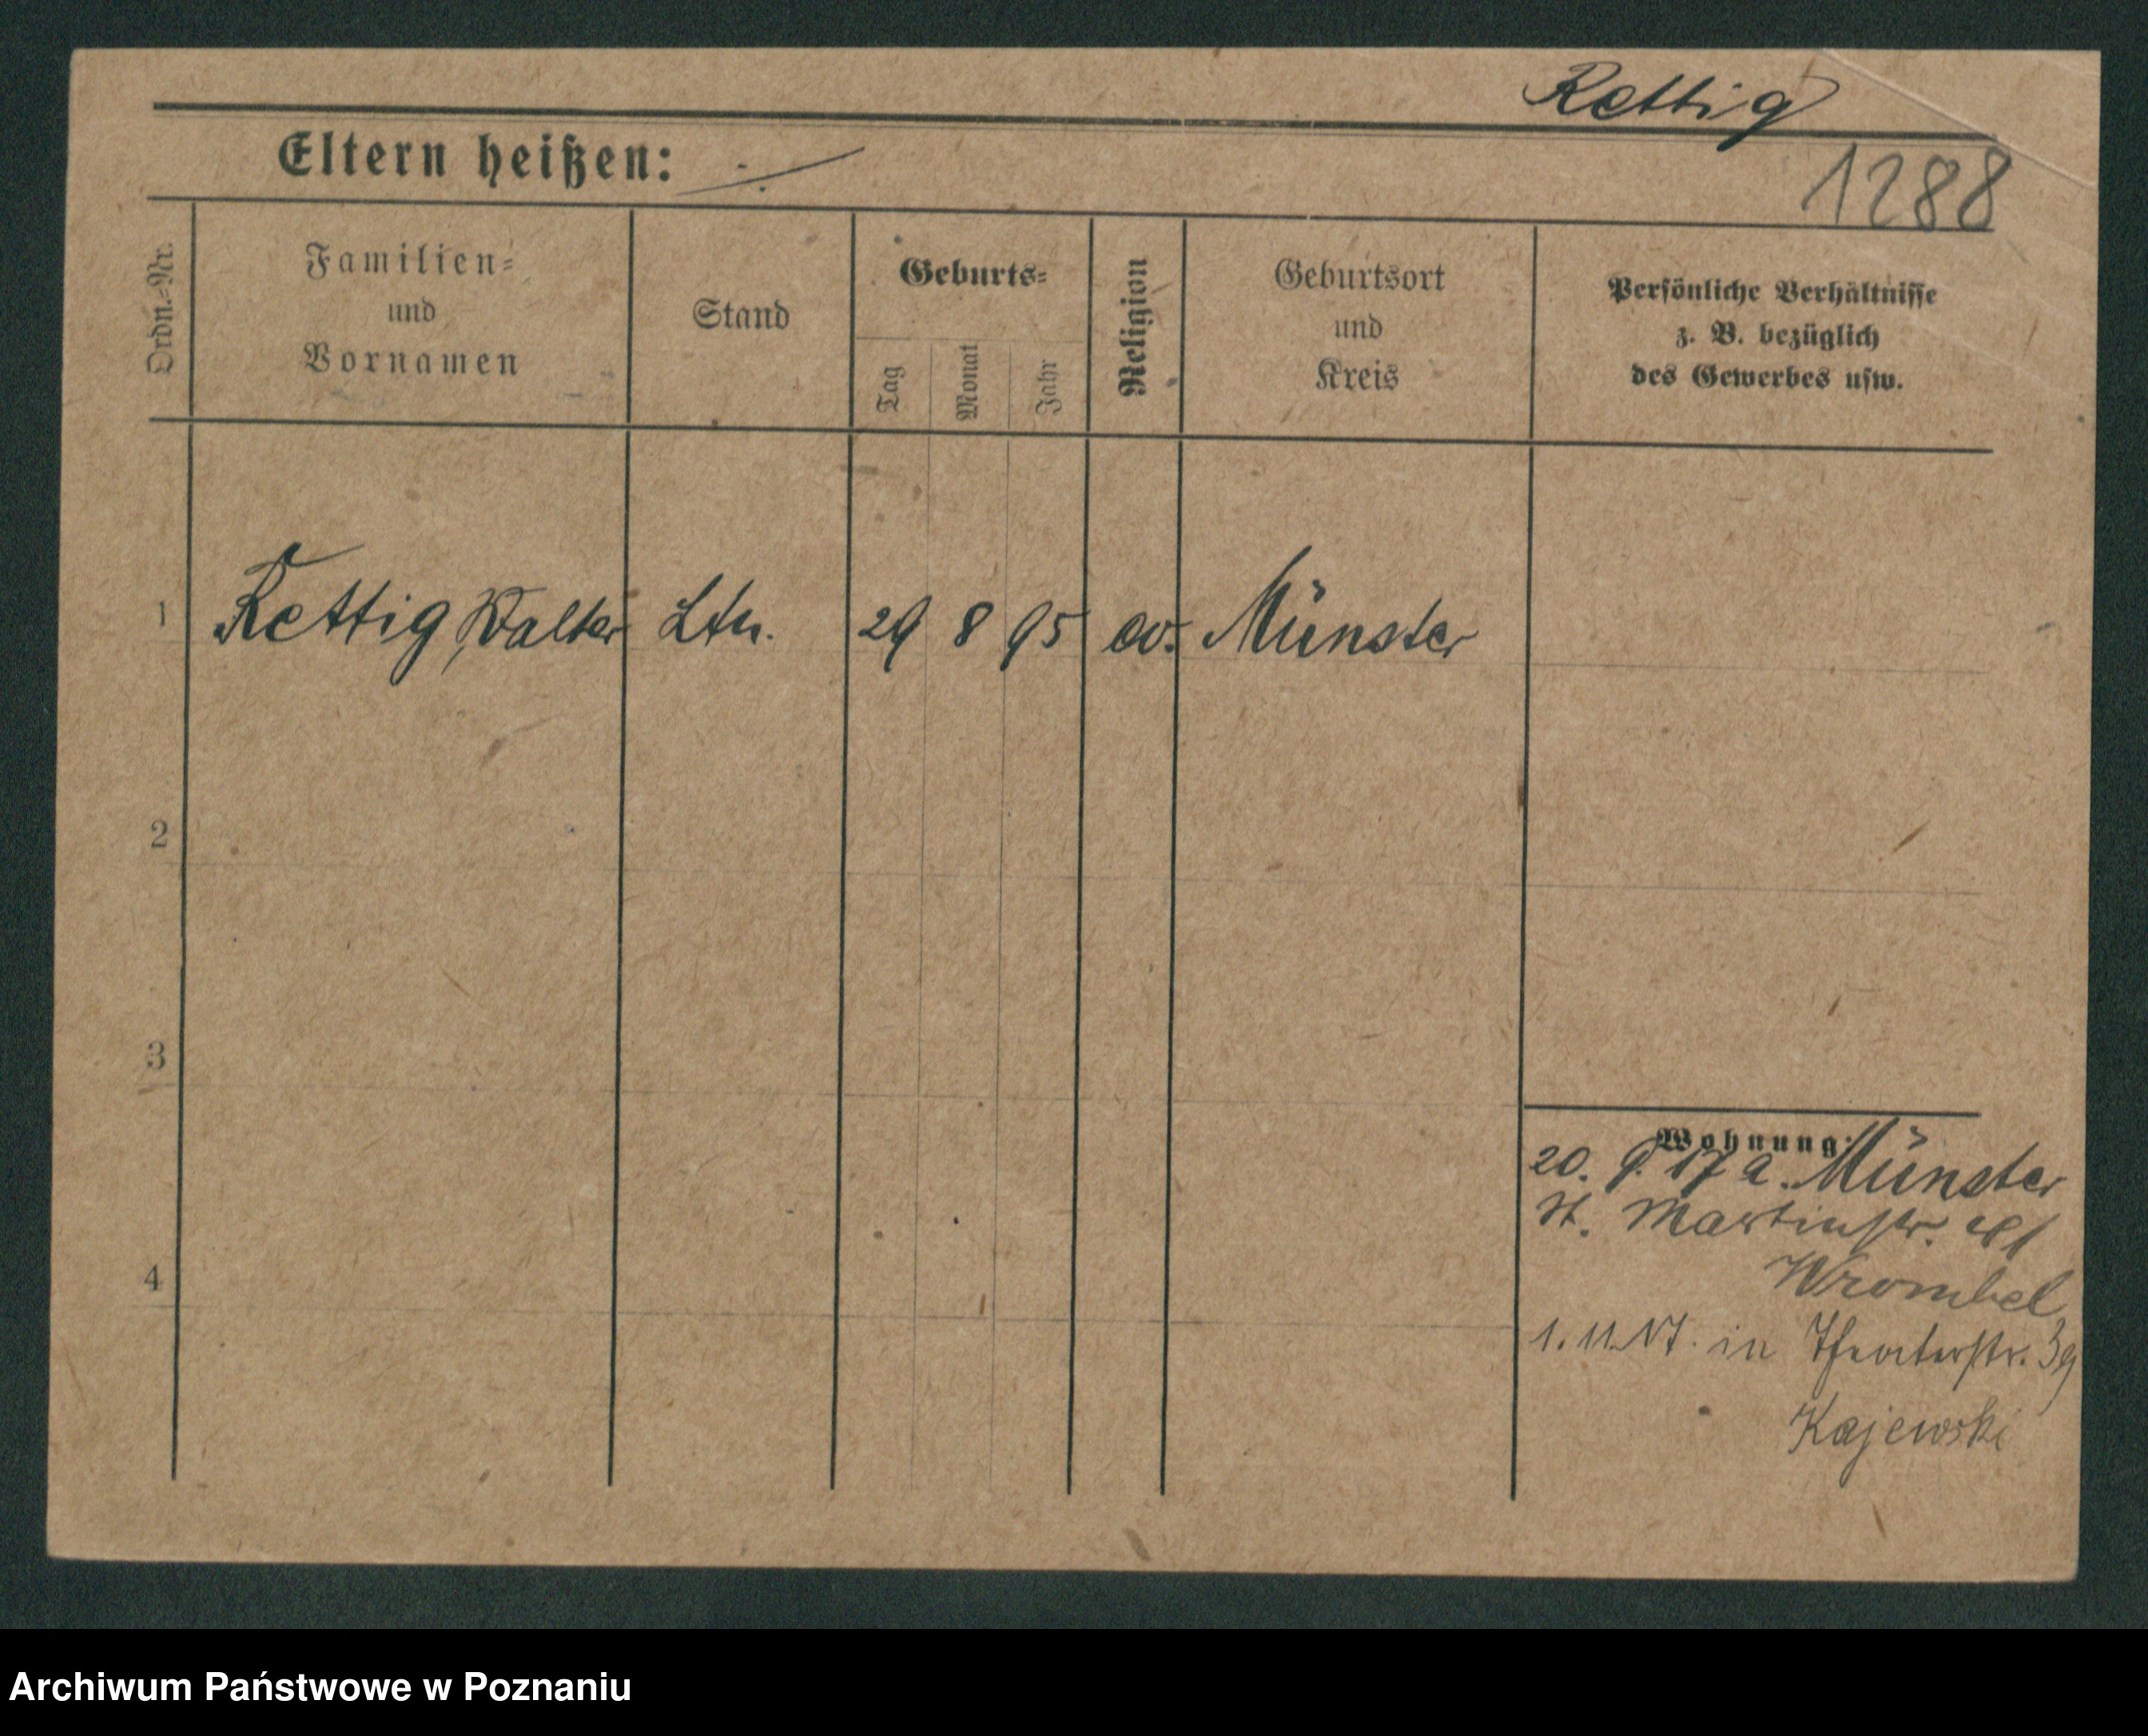 Rettig
Eltern heißen: ÷
1288
Ordn.=Nr.
Familien=
und
Vornamen
Stand
Geburts=
Tag
Monat
Jahr
Religion
Geburtsort
und
Kreis
Persönliche Verhältnisse
z. B. bezüglich
des Gewerbes usw.
1 Rettig, Walter Ltn. 29 8 95 ev. Münster
2
3
4
Wohnung:
20. 9. 17 a. Münster
St. Martinstr.
Wrombel
1. 11. 17. in Theaterstr. 3
Kajewski
Archiwum Państwowe w Poznaniu